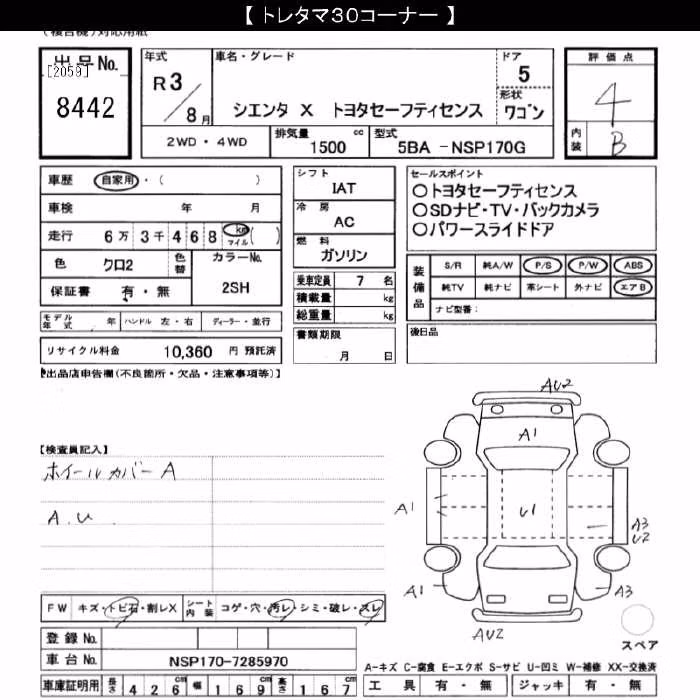 【 トレタマ30コーナー 】
(複合機)対応用紙
出品No.
[2059]
8442
年式
R3/8月
車名・グレード
シエンタ X トヨタセーフティセンス
ドア
5
形状
ワゴン
評価点
4
内装
B
2WD・4WD
排気量 cc
1500
型式
5BA -NSP170G
車歴 自家用・( )
車検 年 月
走行 6万3千468 km マイル( )
色 クロ2 色替
カラーNo.
2SH
保証書 有・無
モデル年式 年 ハンドル 左・右 ディーラー・並行
リサイクル料金 10,360 円 預託済
シフト
IAT
冷房
AC
燃料
ガソリン
乗車定員 7 名
積載量 kg
総重量 kg
書類期限
月 日
セールスポイント
○トヨタセーフティセンス
○SDナビ・TV・バックカメラ
○パワースライドドア
装備品
S/R 純A/W P/S P/W ABS
純TV 純ナビ 革シート 外ナビ エアB
ナビ型番:
後日品
出品店申告欄(不良箇所・欠品・注意事項等)】
【検査員記入】
ホイールカバーA
A.U
AU2
A1
A1
U1
A3
U2
A1
A3
AU2
スペア
FW キズ・トビ石・割レX シート内装 コゲ・穴・汚レ・シミ・破レ・スレ
登録No.
車台No. NSP170-7285970
車庫証明用 長さ 426 幅 169 高さ 167
A-キズ C-腐食 E-エクボ S-サビ U-凹ミ W-補修 XX-交換済
工具 有・無 ジャッキ 有・無